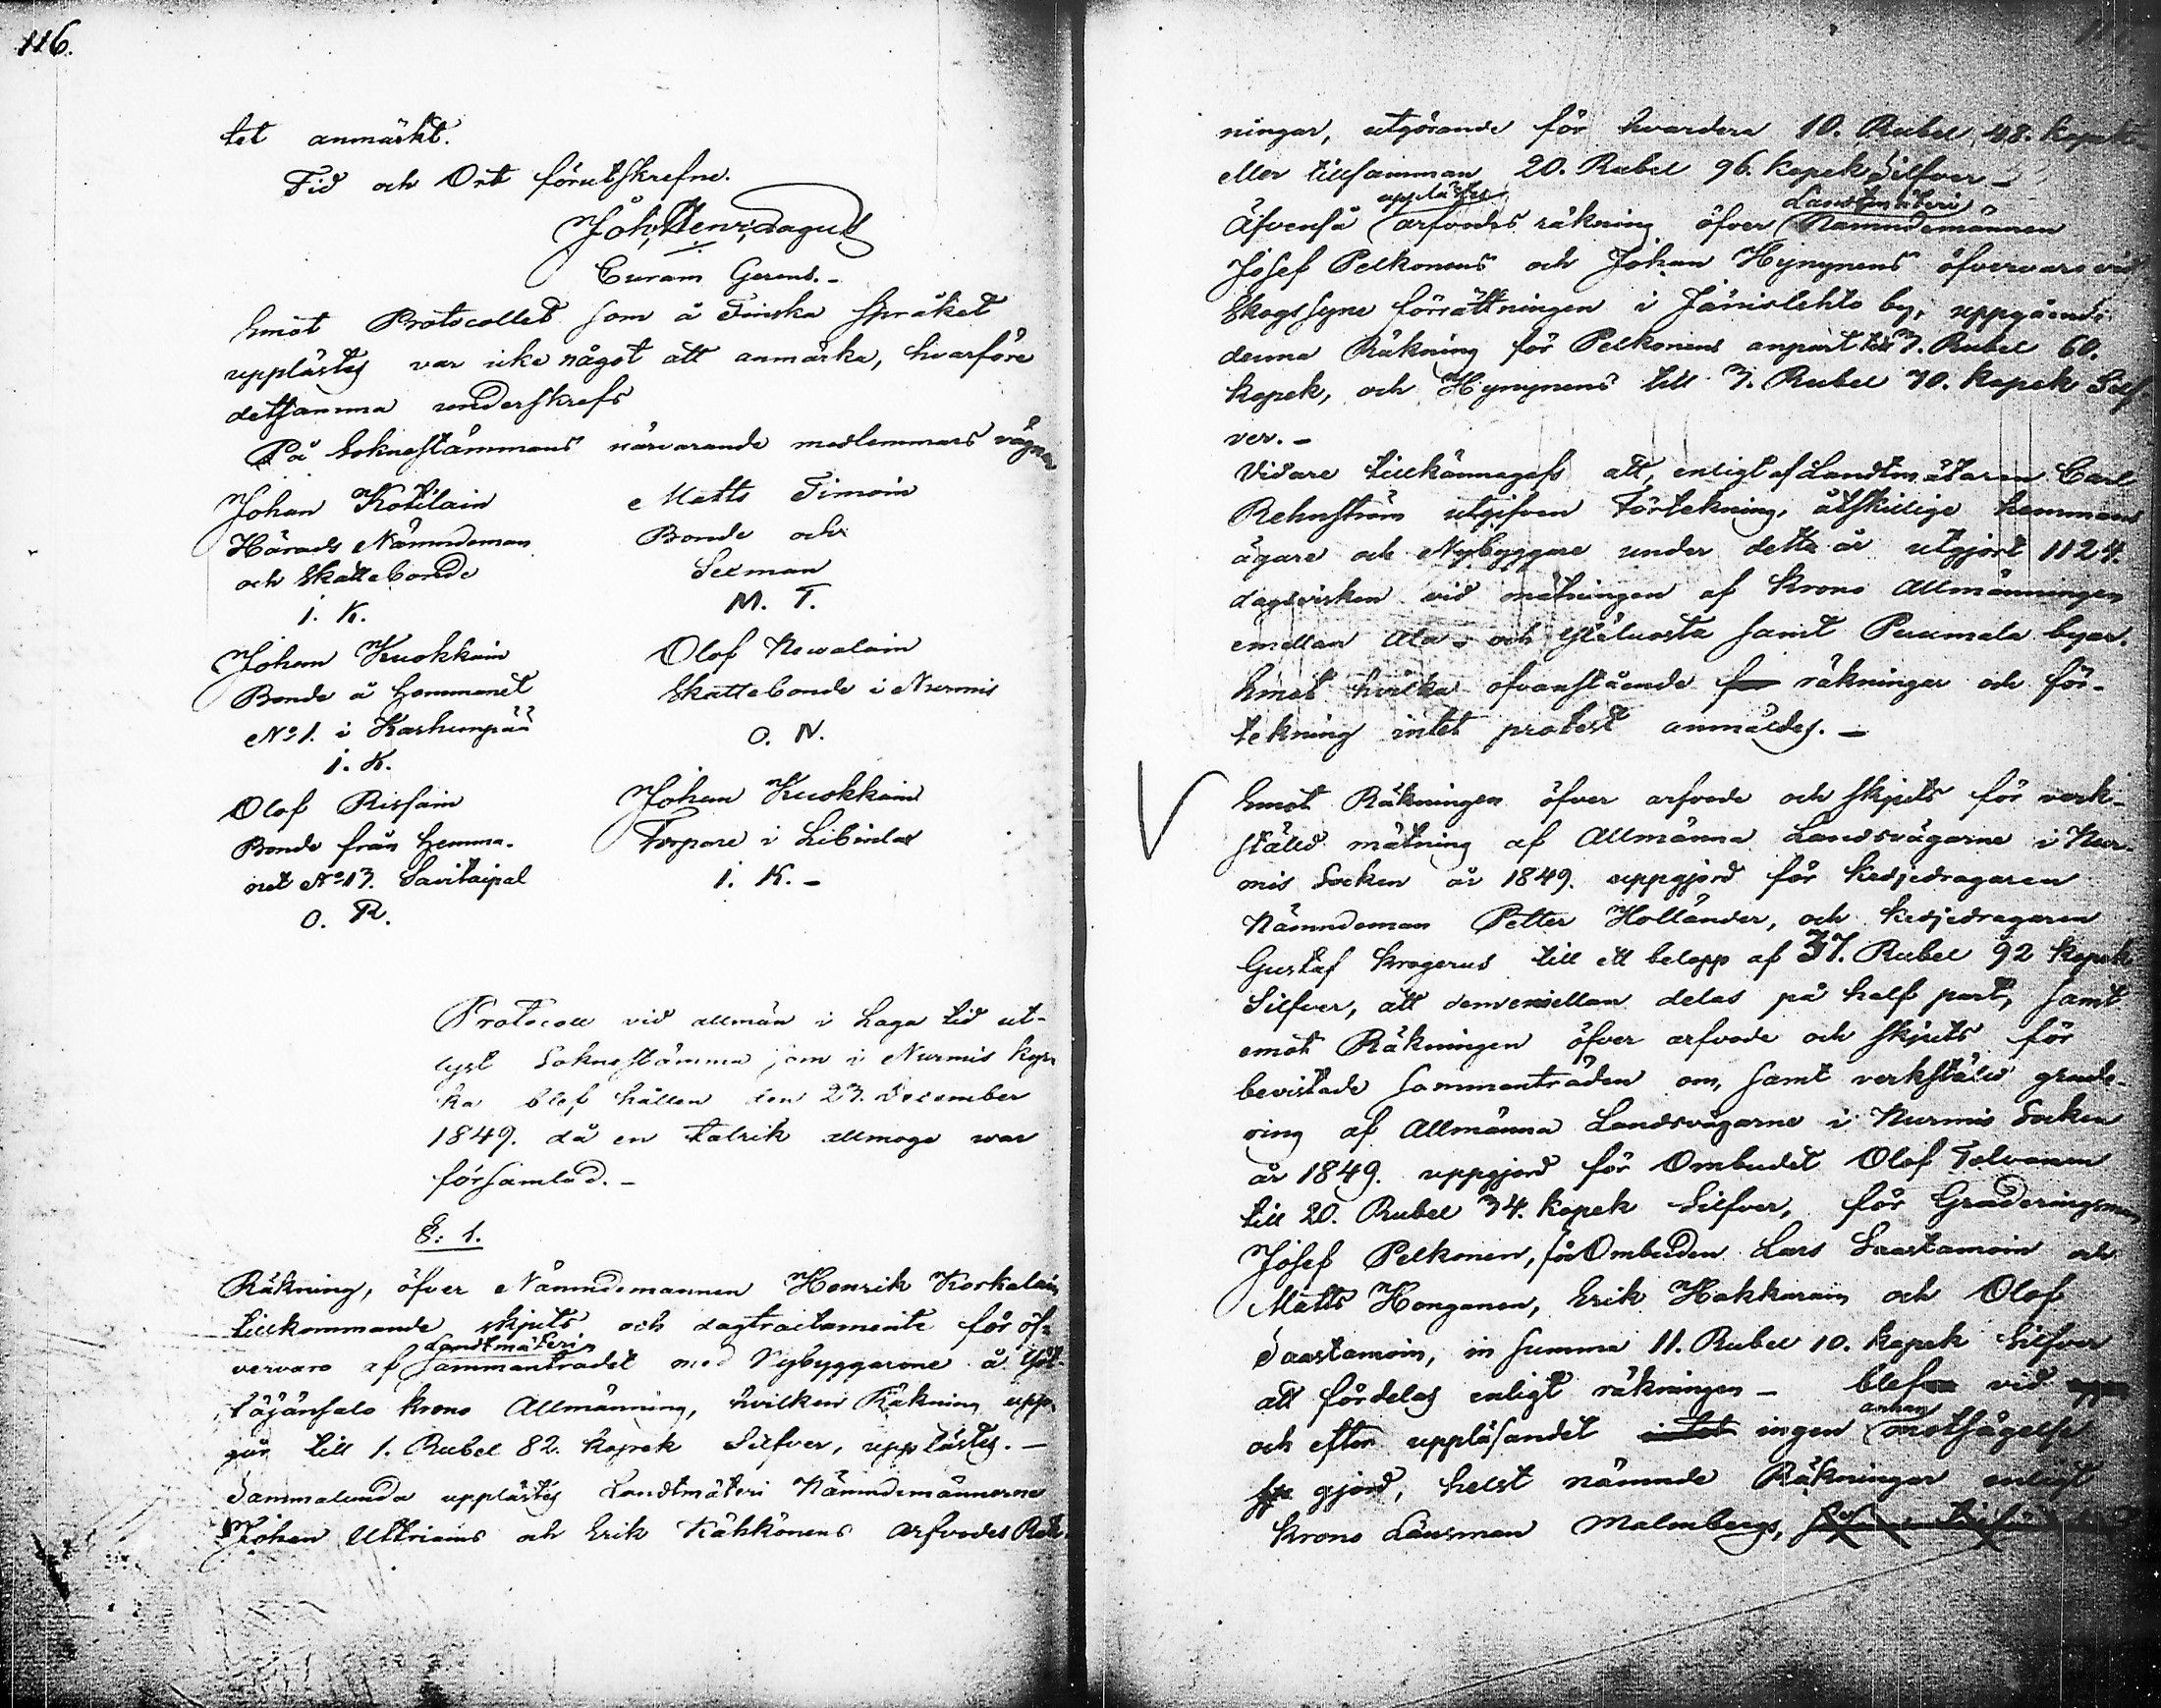 116.
tet anmärkt.
Tid och Ort förutskrefne.
Joh, Henr, Fagus
Curam Gerens.-
Emot Protocollet som å Finska Språket
upplästes var icke något att anmärka, hvarföre
detsamma underskrefs
På Soknestämmans närvarande medlemmars vägnar
Johan Kotilain
Härads Nämndeman
och Skattebonde
I. K.
Matts Timoin
Bonde och
Sexman
M. T.
Johan Kuokkain
Bonde å Hemmanet
No 1. i Karhunpää
I. K.
Olof Newalain
Skattebonde i Nurmis
O. N.
Olof Rissain
Bonde från Hemma-
net No 13. Savitaipal
O. R.
Johan Kuokkain
Torpare i Libinlax
I. K. -
Protocoll vid allmän i Laga tid ut-
lyst Soknestämma som i Nurmis kyr-
ka blef hållen den 23. December
1849. då en talrik allmoge war
församlad.-
§: 1.
Räkning, öfver Nämndemannen Henrik Korkalain
tillkommande skjuts och dagtractamente för öf-
vervaro af Landtmäteri
sammanträdet med Nybyggarne å
krono Allmänning, hvilken Räkning upp-
går till 1. Rubel 82. kopek Silfver, upplästes.-
Sammalunda upplästes Landtmäteri Nämndemännerne
Johan Uttriains och Erik Kähkönens arfvodes Räk-
ningar, utgörande för hvardera 10. Rubel 48. kopek
eller tillsamman 20. Rubel 96. kopek Silfver-
Äfvenså upplästes arfvodes räkning öfver Landtmäteri Nämndemännen
Josef Pelkonens och Johan Hynynens öfvervaro vid
Skogssyne förrättningen i Jänislehto by, uppgående
denna Räkning för Pelkonens anpart till 3. Rubel 60.
kopek, och Hynynens till 3. Rubel 30. kopek Silf-
ver.-
Vidare tillkännagafs att, enligt af Landtmätaren Carl
Rehnström utgifven Förtekning, åtskillige hemmans
ägare och Nybyggare under detta år utgjort 1124.
dagsverken vid mätningen af krono Allmänningen
emellan Ala- och Yläluosta samt Puumala byar.
Emot hvilka ofvanstående räkningar och för-
tekning intet protest anmäldes.-
Emot Räkningen öfver arfvode och skjuts för verk-
stäld mätning af Allmänna Landsvägarne i Nur-
mis Socken år 1849. uppgjord för kedjedragaren
Nämndeman Petter Holländer, och kedjedragaren
Gustaf Krogerus till ett belopp af 37. Rubel 92 kopek
Silfver, att dememellan delas på half part, samt
emot Räkningen öfver arfvode och skjuts för
bevistade sammanträden om, samt verkstäld grade-
ring af Allmänna Landsvägarne i Nurmis Socken
år 1849. uppgjord för Ombudet Olof Tolvanen
till 20. Rubel 34. kopek Silfver, för Graderingsman
Josef Pelkonen, för Ombuden Lars Saastamoin och
Matts Honganen, Erik Hakkarain och Olof
Saastamoin, in summa 11. Rubel 10. kopek Silfver
att fördelas enligt räkningen - blef vid
och efter uppläsandet intet ingen annan motsägelse
gjord, helst nämnde Räkningar enligt
krono Länsman Malmbergs,